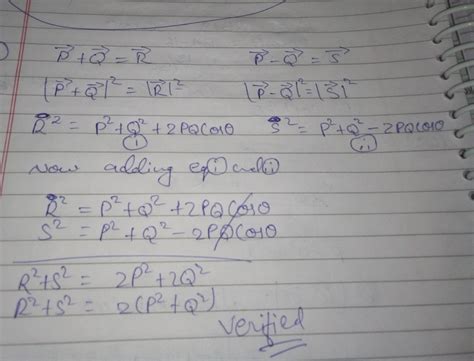 P⃗ + Q⃗ = R⃗    P⃗ - Q⃗ = S⃗
|P⃗ + Q⃗|² = |R⃗|²    |P⃗ - Q⃗|² = |S⃗|²
R² = P² + Q² + 2PQ Cosθ    S² = P² + Q² - 2PQ Cosθ
(i)    (ii)
Now adding eq (i) and (ii)
R² = P² + Q² + 2PQ Cosθ
S² = P² + Q² - 2PQ Cosθ
R² + S² = 2P² + 2Q²
R² + S² = 2(P² + Q²)
Verified